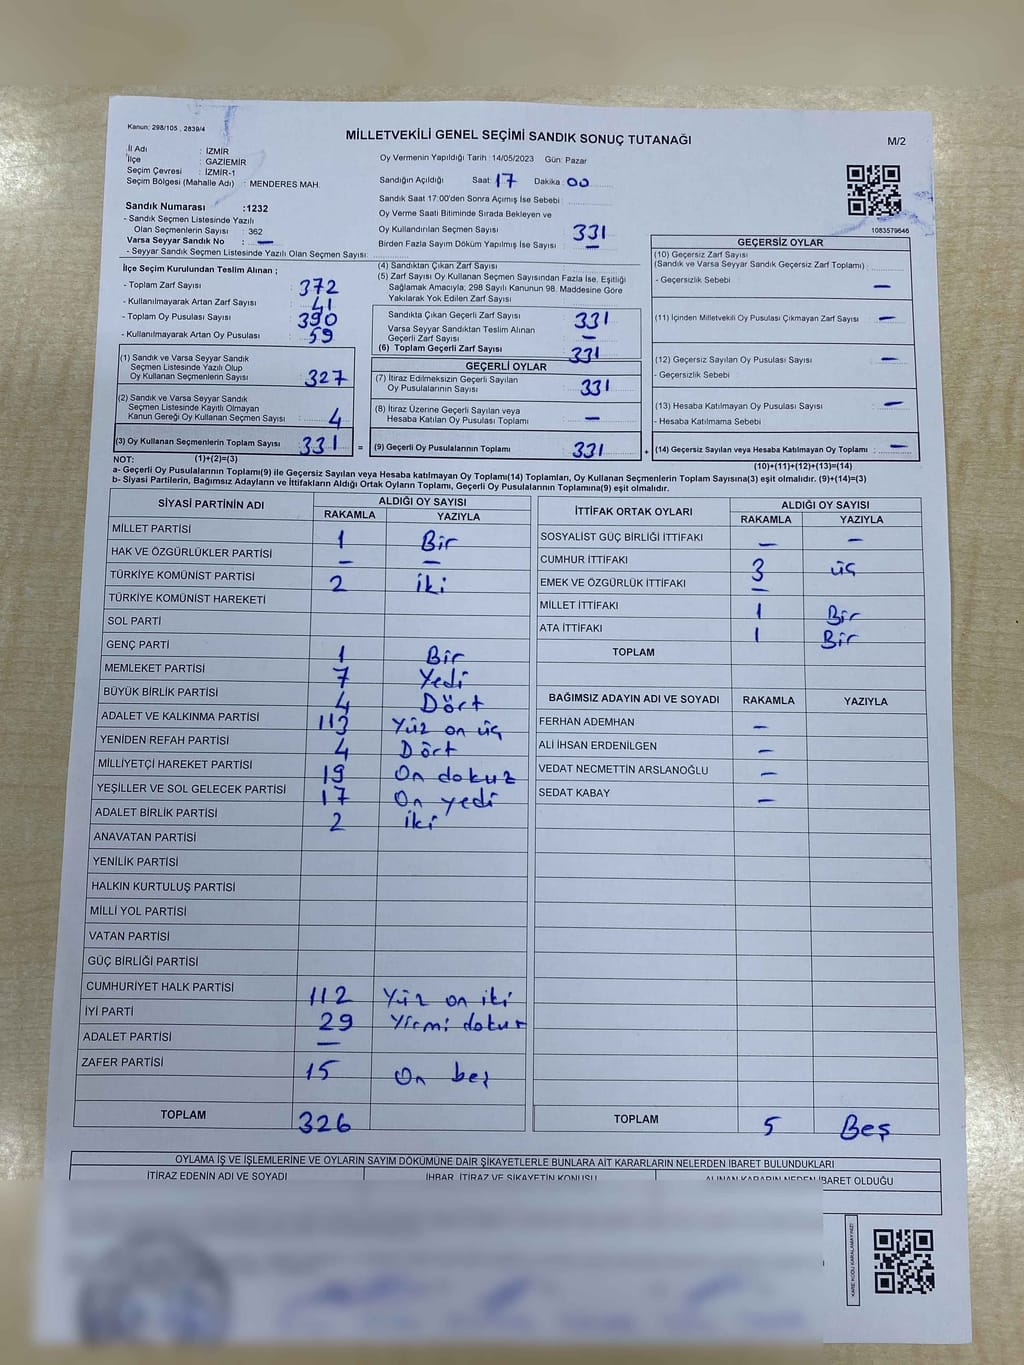 Kanun; 298/105 , 2839/4
MİLLETVEKİLİ GENEL SEÇİMİ SANDIK SONUÇ TUTANAĞI
M/2
İl Adı : İZMİR
İlçe : GAZİEMİR
Seçim Çevresi : İZMİR-1
Seçim Bölgesi (Mahalle Adı) : MENDERES MAH.
Oy Vermenin Yapıldığı Tarih : 14/05/2023 Gün: Pazar
Sandığın Açıldığı Saat: 17 Dakika: 00
Sandık Saat 17:00'den Sonra Açımış İse Sebebi :
Oy Verme Saati Bitiminde Sırada Bekleyen ve
Oy Kullandırılan Seçmen Sayısı : 331
Birden Fazla Sayım Döküm Yapılmış İse Sayısı : —
1083579646
Sandık Numarası :1232
- Sandık Seçmen Listesinde Yazılı
Olan Seçmenlerin Sayısı : 362
Varsa Seyyar Sandık No : —
- Seyyar Sandık Seçmen Listesinde Yazılı Olan Seçmen Sayısı:
İlçe Seçim Kurulundan Teslim Alınan ;
- Toplam Zarf Sayısı : 372
- Kullanılmayarak Artan Zarf Sayısı : 41
- Toplam Oy Pusulası Sayısı : 390
- Kullanılmayarak Artan Oy Pusulası : 59
(1) Sandık ve Varsa Seyyar Sandık
Seçmen Listesinde Yazılı Olup
Oy Kullanan Seçmenlerin Sayısı : 327
(2) Sandık ve Varsa Seyyar Sandık
Seçmen Listesinde Kayıtlı Olmayan
Kanun Gereği Oy Kullanan Seçmen Sayısı : 4
(3) Oy Kullanan Seçmenlerin Toplam Sayısı : 331 =
(4) Sandıktan Çıkan Zarf Sayısı :
(5) Zarf Sayısı Oy Kullanan Seçmen Sayısından Fazla İse, Eşitliği
Sağlamak Amacıyla; 298 Sayılı Kanunun 98. Maddesine Göre
Yakılarak Yok Edilen Zarf Sayısı :
Sandıkta Çıkan Geçerli Zarf Sayısı : 331
Varsa Seyyar Sandıktan Teslim Alınan
Geçerli Zarf Sayısı : —
(6) Toplam Geçerli Zarf Sayısı : 331
GEÇERLİ OYLAR
(7) İtiraz Edilmeksizin Geçerli Sayılan
Oy Pusulalarının Sayısı : 331
(8) İtiraz Üzerine Geçerli Sayılan veya
Hesaba Katılan Oy Pusulası Toplamı : —
(9) Geçerli Oy Pusulalarının Toplamı : 331 +
GEÇERSİZ OYLAR
(10) Geçersiz Zarf Sayısı
(Sandık ve Varsa Seyyar Sandık Geçersiz Zarf Toplamı) :
- Geçersizlik Sebebi : —
(11) İçinden Milletvekili Oy Pusulası Çıkmayan Zarf Sayısı : —
(12) Geçersiz Sayılan Oy Pusulası Sayısı : —
- Geçersizlik Sebebi :
(13) Hesaba Katılmayan Oy Pusulası Sayısı : —
- Hesaba Katılmama Sebebi :
(14) Geçersiz Sayılan veya Hesaba Katılmayan Oy Toplamı : —
NOT: (1)+(2)=(3)
(10)+(11)+(12)+(13)=(14)
a- Geçerli Oy Pusulalarının Toplamı(9) ile Geçersiz Sayılan veya Hesaba katılmayan Oy Toplamı(14) Toplamları, Oy Kullanan Seçmenlerin Toplam Sayısına(3) eşit olmalıdır. (9)+(14)=(3)
b- Siyasi Partilerin, Bağımsız Adayların ve İttifakların Aldığı Ortak Oyların Toplamı, Geçerli Oy Pusulalarının Toplamına(9) eşit olmalıdır.
SİYASİ PARTİNİN ADI ALDIĞI OY SAYISI
RAKAMLA YAZIYLA
MİLLET PARTİSİ 1 Bir
HAK VE ÖZGÜRLÜKLER PARTİSİ — —
TÜRKİYE KOMÜNİST PARTİSİ 2 iki
TÜRKİYE KOMÜNİST HAREKETİ
SOL PARTİ
GENÇ PARTİ 1 Bir
MEMLEKET PARTİSİ 7 Yedi
BÜYÜK BİRLİK PARTİSİ 4 Dört
ADALET VE KALKINMA PARTİSİ 113 Yüz on üç
YENİDEN REFAH PARTİSİ 4 Dört
MİLLİYETÇİ HAREKET PARTİSİ 19 On dokuz
YEŞİLLER VE SOL GELECEK PARTİSİ 17 On yedi
ADALET BİRLİK PARTİSİ 2 iki
ANAVATAN PARTİSİ
YENİLİK PARTİSİ
HALKIN KURTULUŞ PARTİSİ
MİLLİ YOL PARTİSİ
VATAN PARTİSİ
GÜÇ BİRLİĞİ PARTİSİ
CUMHURİYET HALK PARTİSİ 112 Yüz on iki
İYİ PARTİ 29 Yirmi dokuz
ADALET PARTİSİ —
ZAFER PARTİSİ 15 On beş
TOPLAM 326
İTTİFAK ORTAK OYLARI ALDIĞI OY SAYISI
RAKAMLA YAZIYLA
SOSYALİST GÜÇ BİRLİĞİ İTTİFAKI — —
CUMHUR İTTİFAKI 3 üç
EMEK VE ÖZGÜRLÜK İTTİFAKI —
MİLLET İTTİFAKI 1 Bir
ATA İTTİFAKI 1 Bir
TOPLAM
BAĞIMSIZ ADAYIN ADI VE SOYADI RAKAMLA YAZIYLA
FERHAN ADEMHAN —
ALİ İHSAN ERDENİLGEN —
VEDAT NECMETTİN ARSLANOĞLU —
SEDAT KABAY —
TOPLAM 5 Beş
OYLAMA İŞ VE İŞLEMLERİNE VE OYLARIN SAYIM DÖKÜMÜNE DAİR ŞİKAYETLERLE BUNLARA AİT KARARLARIN NELERDEN İBARET BULUNDUKLARI
İTİRAZ EDENİN ADI VE SOYADI İHBAR, İTİRAZ VE ŞİKAYETİN KONUSU ALINAN KARARIN NEDEN İBARET OLDUĞU
KARE KODU KARALAMAYINIZ!